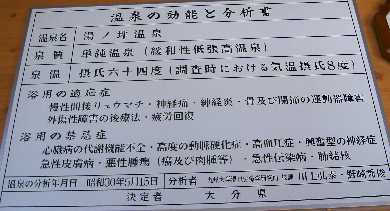 温泉の効能と分析書
温泉名 湯ノ坪温泉
泉質 単純温泉（緩和性低張高温泉）
泉温 摂氏六十四度（調査時における気温摂氏8度）
浴用の適応症
慢性関接リュウマチ・神経痛・神経炎・骨及び関節の運動器障害
外傷性障害の後療法・疲労回復
浴用の禁忌症
心臓病の代謝機能不全・高度の動脈硬化症・高血圧症・興奮型の神経症
急性皮膚病・悪性腫瘍（癌及び肉腫等）・急性伝染病・肺結核
温泉の分析年月日 昭和30年5月15日 分析者
決定者 大分県